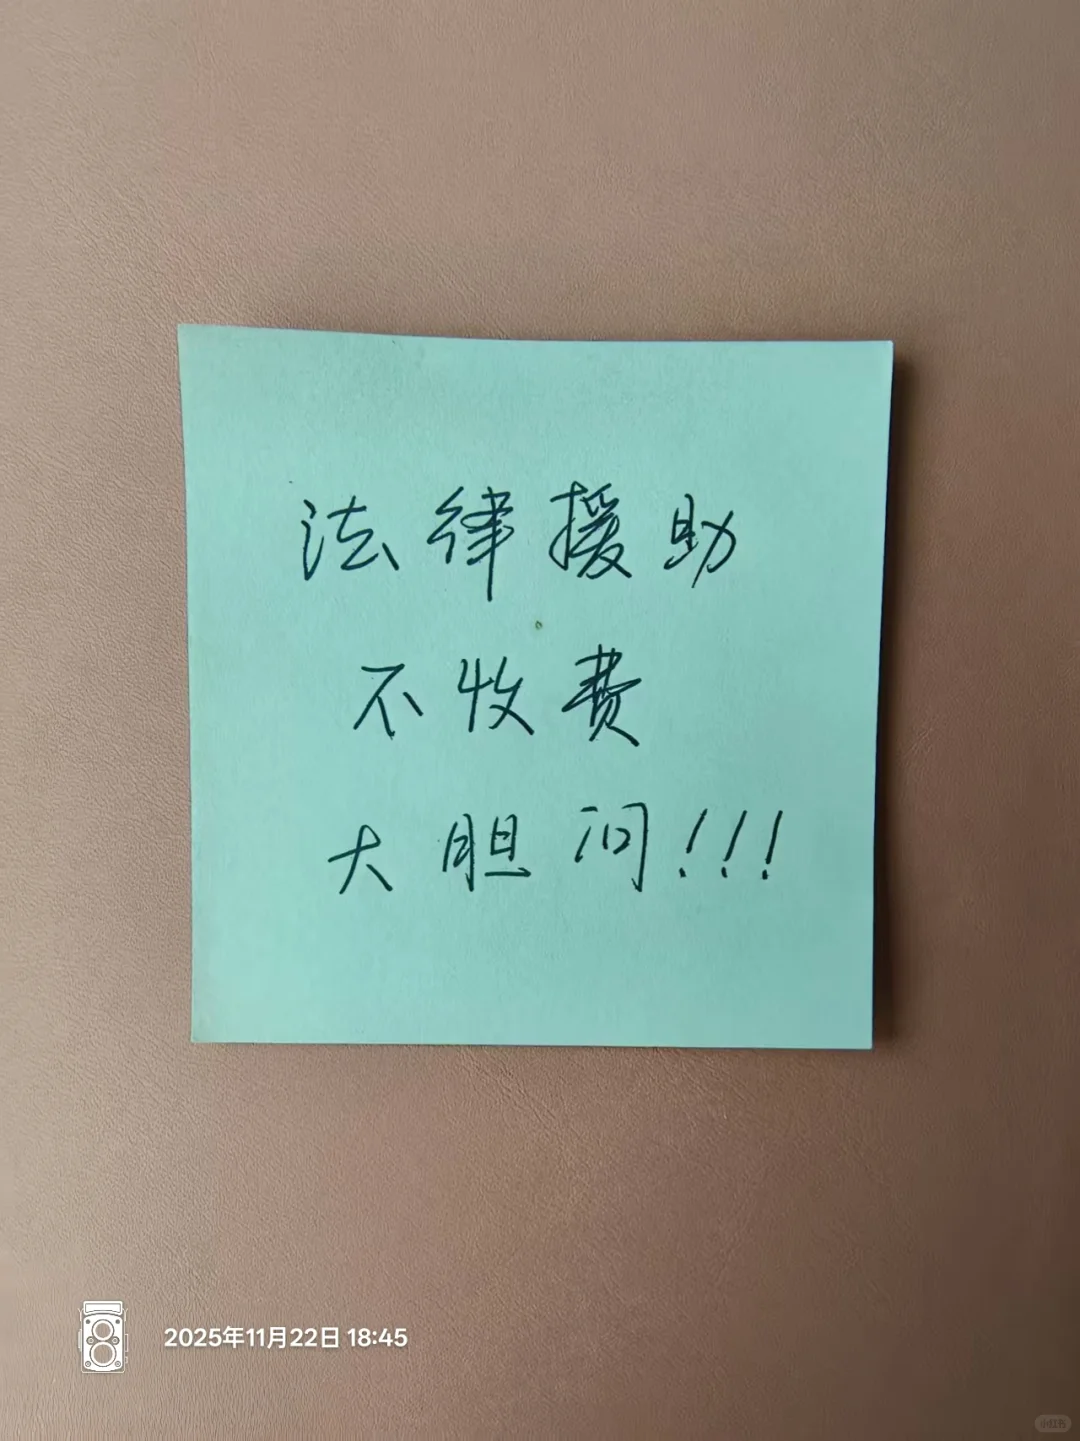 法律援助
不收费
大胆问!!!
2025年11月22日 18:45
小红书